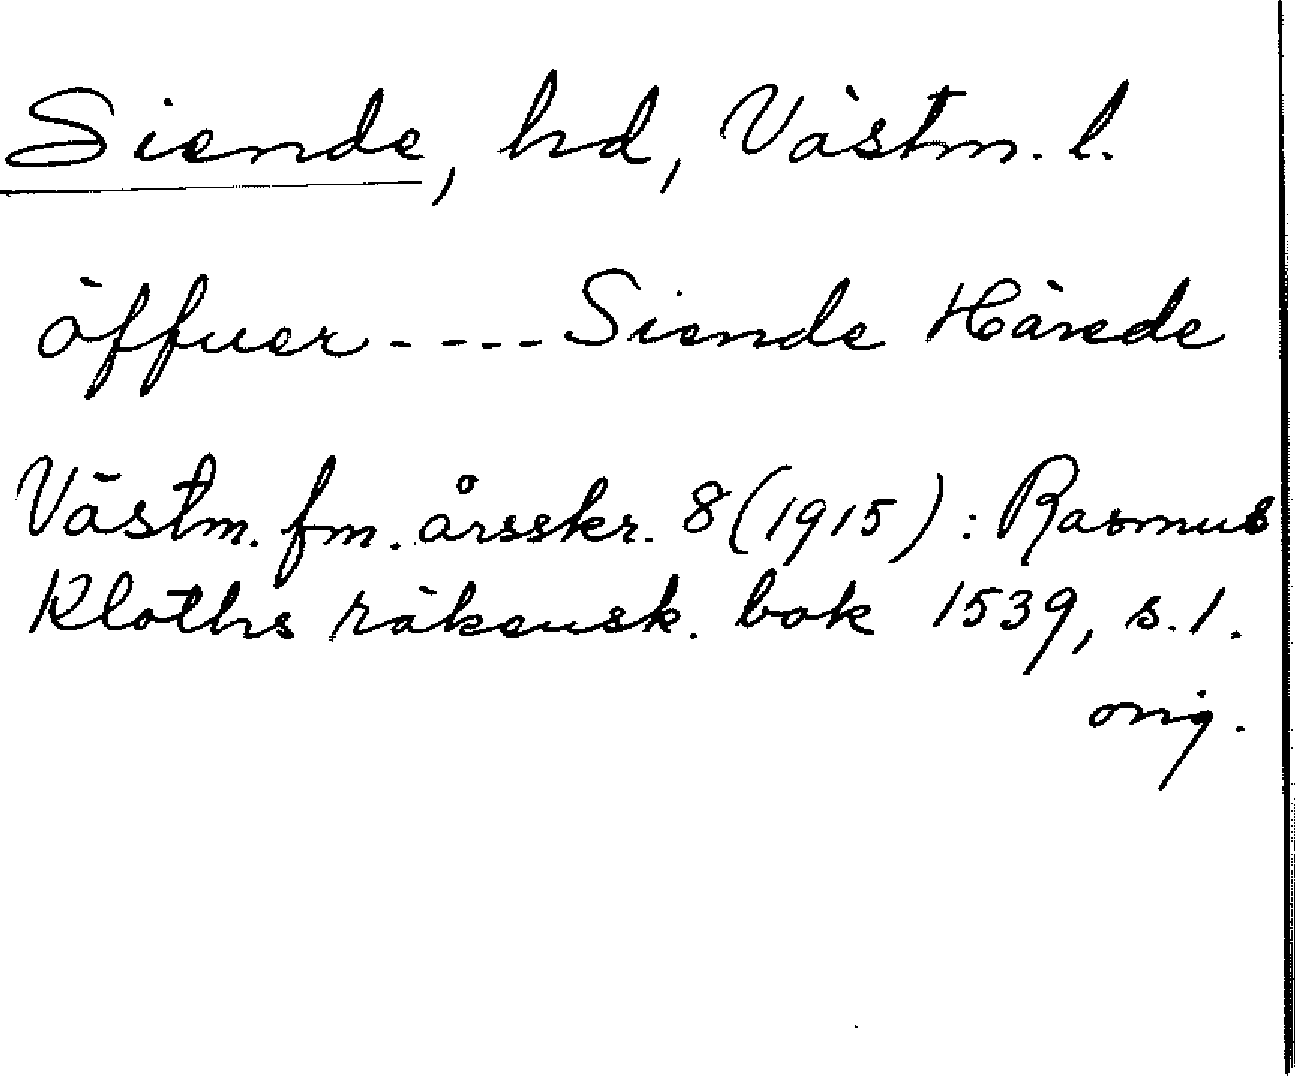 Siende, hd, Västm. l.
öffuer - - - - Siende Härede
Västm. fm. årsskr. 8 (1915) : Rasmus
Kloths räkensk. bok 1539, s. 1.
orig.